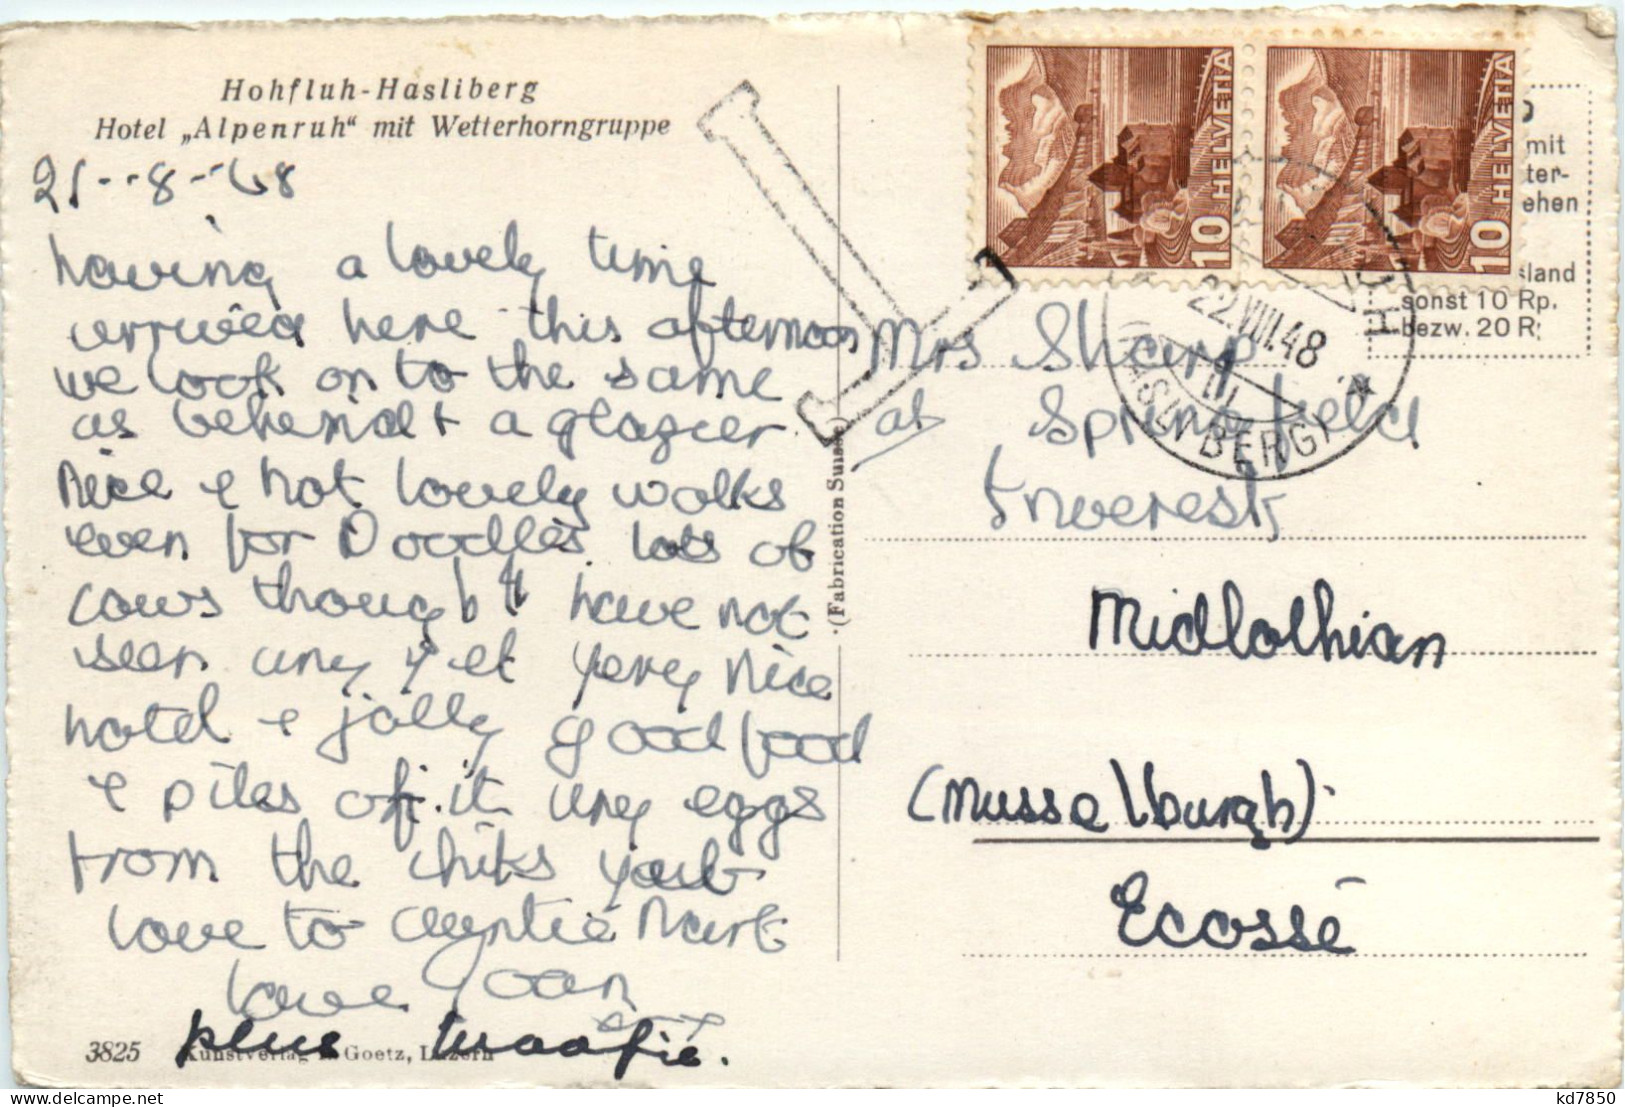 Hohfluh-Hasliberg
Hotel „Alpenruh“ mit Wetterhorngruppe
21--8-48
having a lovely time
arrived here this afternoon
we look on to the same
as behend & a glazier
nice & hot lovely walks
even for Doodles. lots of
cows though have not
seen any yet very nice
hotel & jolly good food
& piles of it any eggs
from the chiks yeub
love to auntie Mart
love Joan
plus Waafie.
3825 Kunstverlag Goetz, Luzern
(Fabrication Suisse)
L
10 HELVETIA
10 HELVETIA
mit
ter-
ehen
sland
sonst 10 Rp.
bezw. 20 R
22.VIII.48
(HASLIBERG)
Mrs Sharp
at Springfield
Inveresk
Midlothian
(Musselburgh)
Ecossé
kd7850